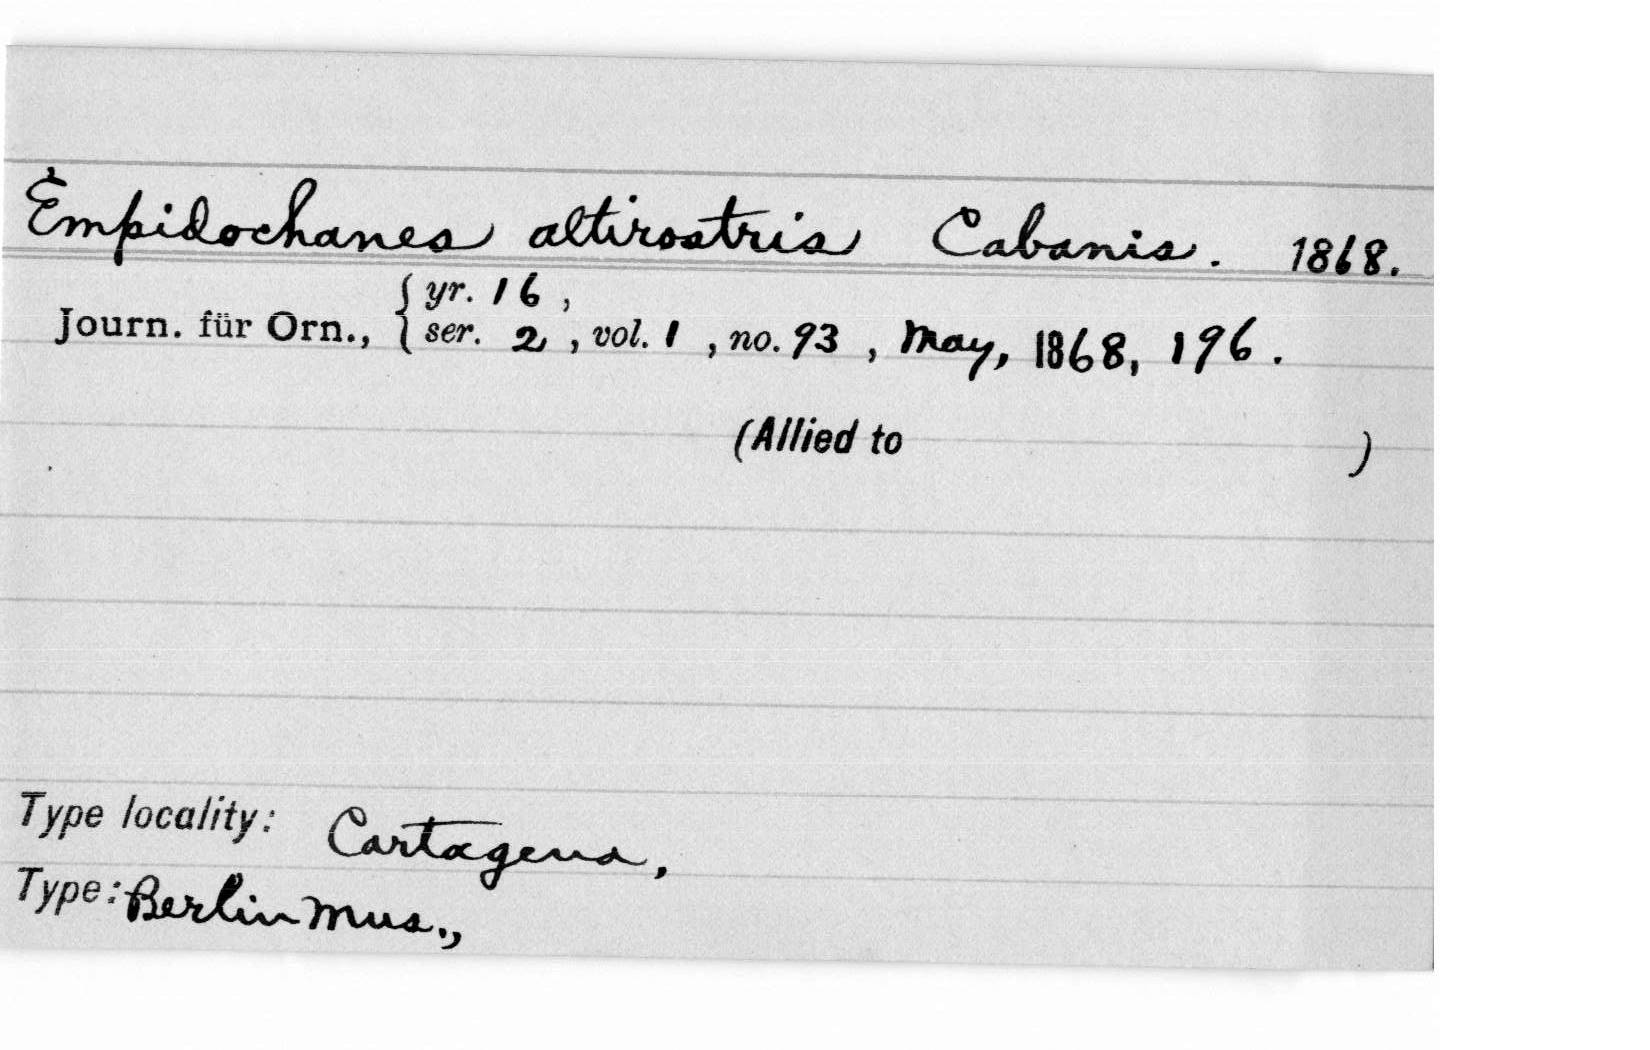 Empidochanes altirostris Cabanis. 1868.
yr. 16,
Journ. für Orn., ser. 2, vol. 1, no. 93, May, 1868, 196.
(Allied to )
Type locality: Cartagena,
Type: Berlin Mus.,